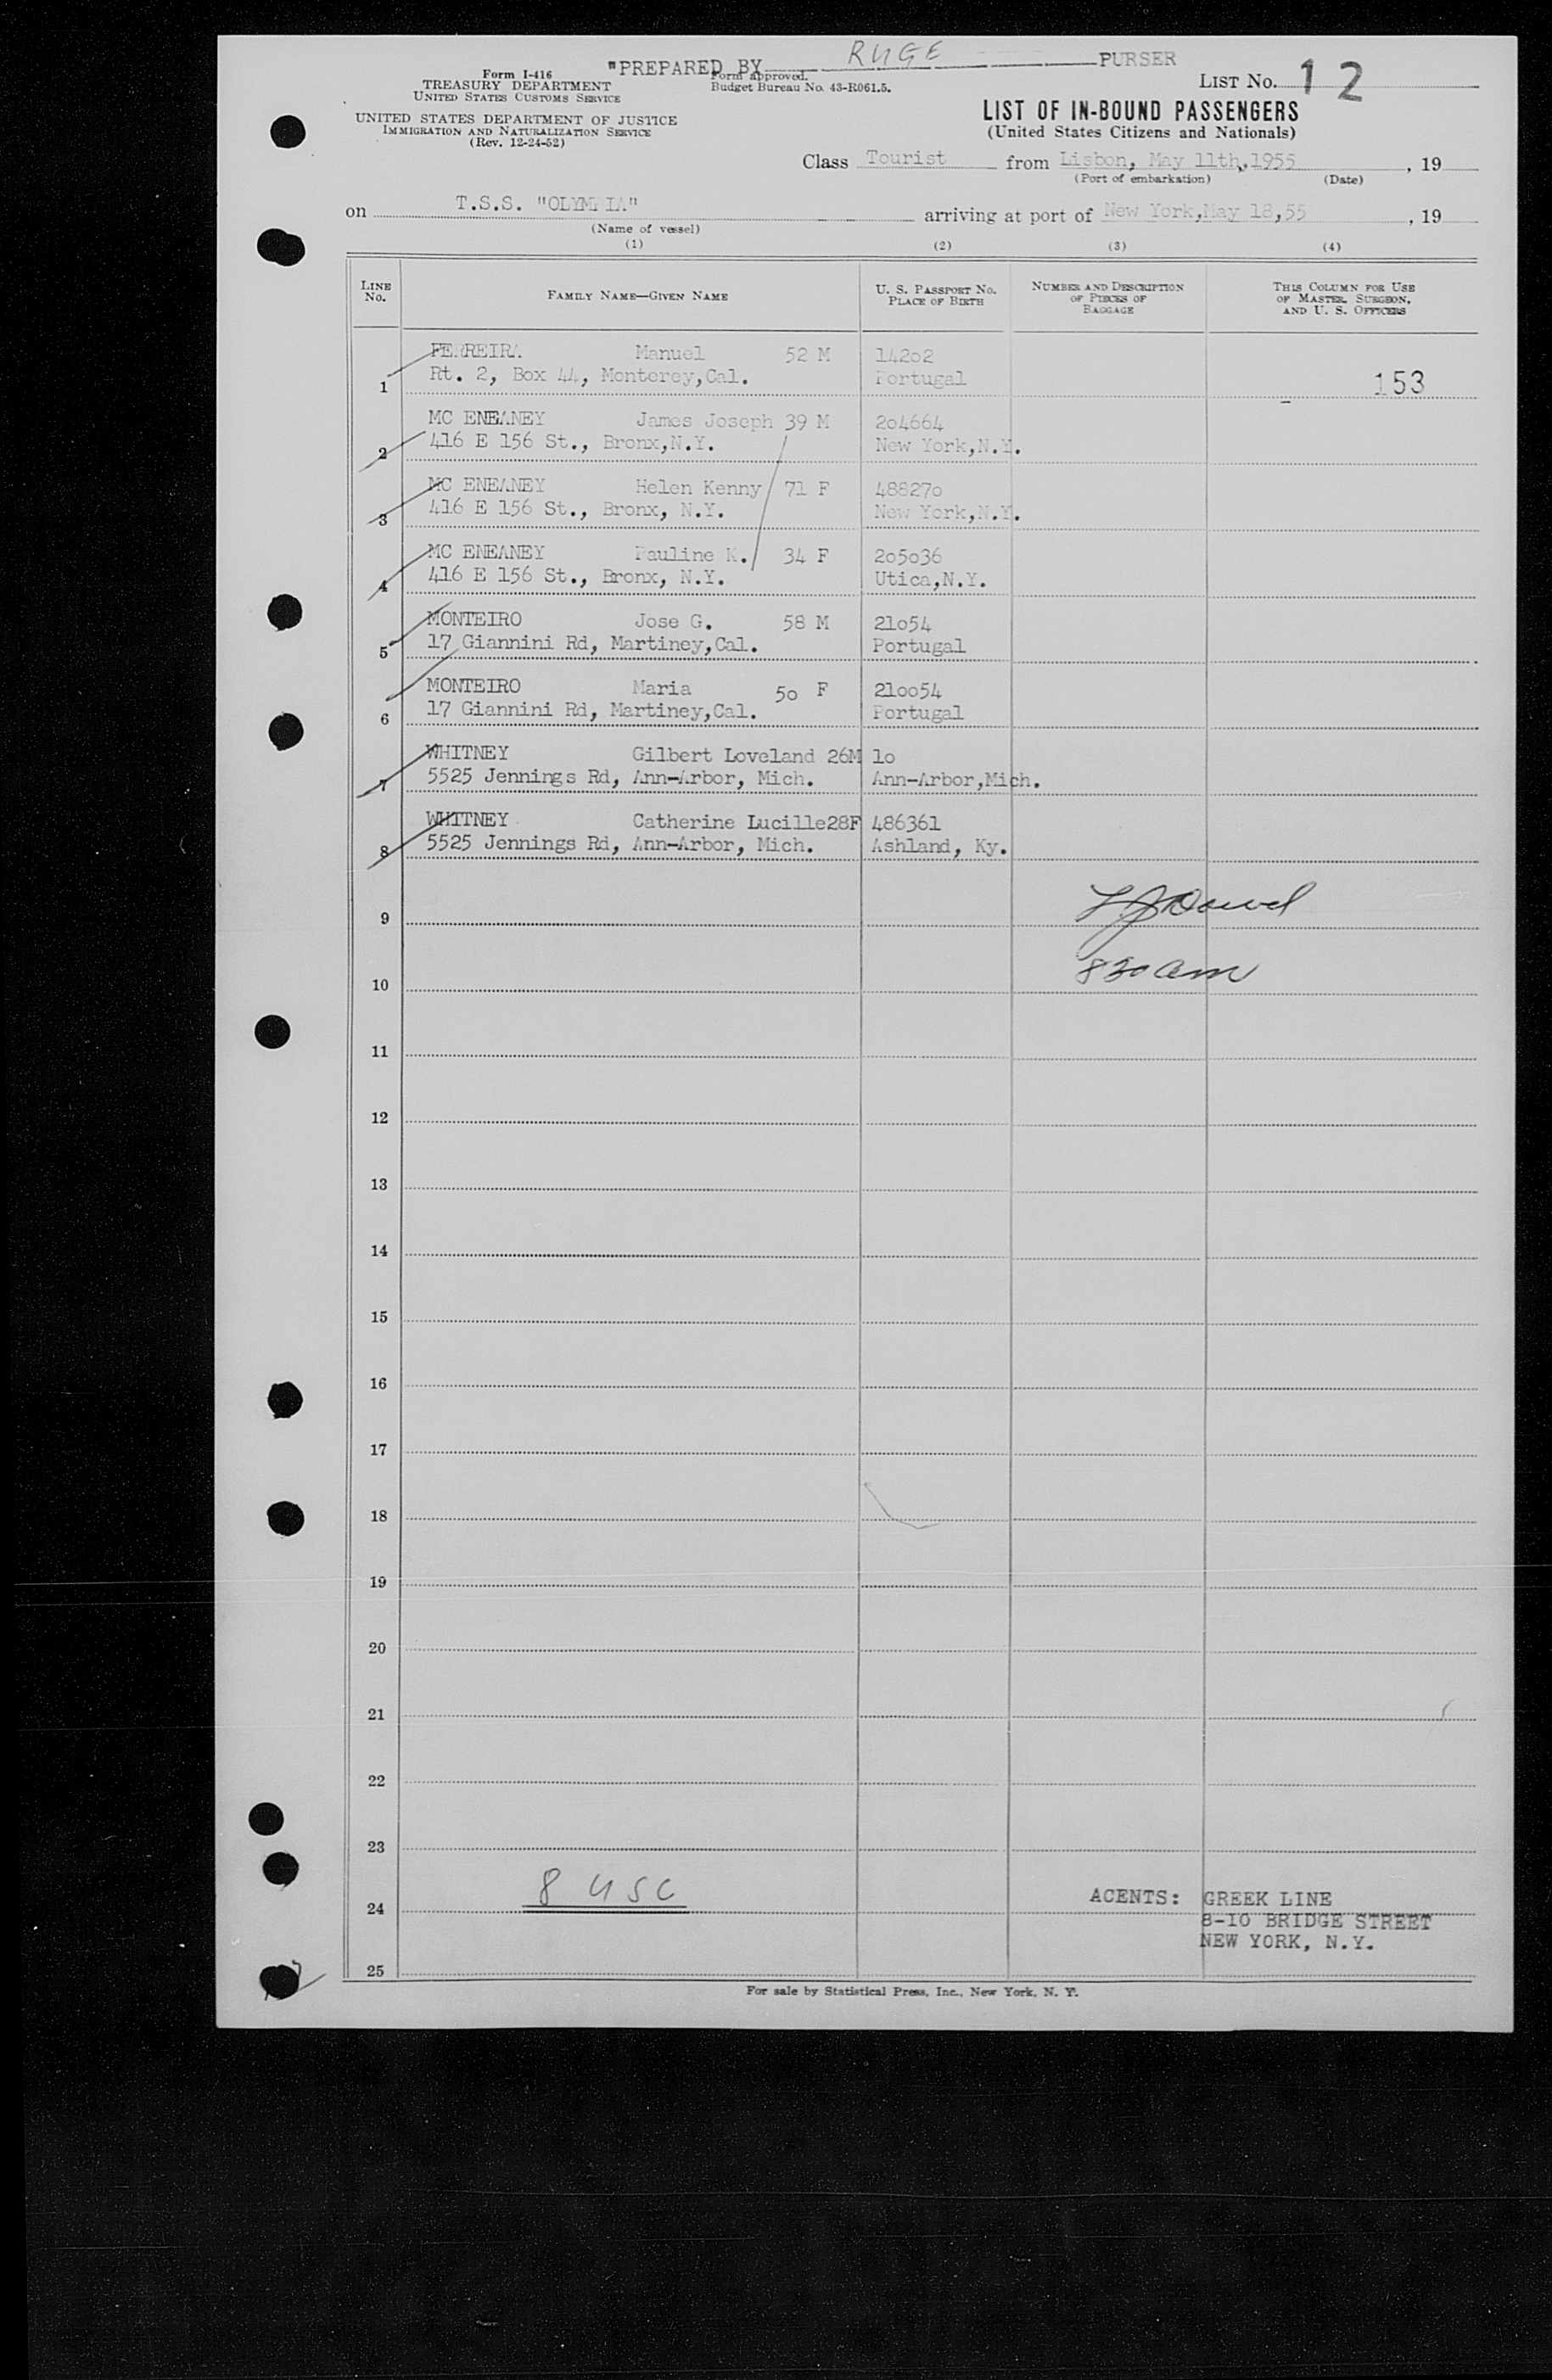 "PREPARED BY RUGE PURSER
Form I-416
TREASURY DEPARTMENT
UNITED STATES CUSTOMS SERVICE
UNITED STATES DEPARTMENT OF JUSTICE
IMMIGRATION AND NATURALIZATION SERVICE
(Rev. 12-24-52)
Form approved.
Budget Bureau No. 43-R061.5.
LIST No. 12
LIST OF IN-BOUND PASSENGERS
(United States Citizens and Nationals)
Class Tourist from Lisbon, May 11th,1955, 19
(Port of embarkation) (Date)
on T.S.S. "OLYMPIA" arriving at port of New York,May 18,55, 19
(Name of vessel)
(1) (2) (3) (4)
LINE No. FAMILY NAME—GIVEN NAME U. S. PASSPORT NO. PLACE OF BIRTH NUMBER AND DESCRIPTION OF PIECES OF BAGGAGE THIS COLUMN FOR USE OF MASTER, SURGEON, AND U. S. OFFICERS
FERREIRA Manuel 52 M 14202
1 Rt. 2, Box 44, Monterey,Cal. Portugal 153
MC ENEANEY James Joseph 39 M 204664
2 416 E 156 St., Bronx,N.Y. New York,N.Y.
MC ENEANEY Helen Kenny 71 F 488270
3 416 E 156 St., Bronx, N.Y. New York,N.Y.
MC ENEANEY Pauline K. 34 F 205036
4 416 E 156 St., Bronx, N.Y. Utica,N.Y.
MONTEIRO Jose G. 58 M 21054
5 17 Giannini Rd, Martiney,Cal. Portugal
MONTEIRO Maria 50 F 210054
6 17 Giannini Rd, Martiney,Cal. Portugal
WHITNEY Gilbert Loveland 26M 10
7 5525 Jennings Rd, Ann-Arbor, Mich. Ann-Arbor,Mich.
WHITNEY Catherine Lucille28F 486361
8 5525 Jennings Rd, Ann-Arbor, Mich. Ashland, Ky.
9
830 am
10
11
12
13
14
15
16
17
18
19
20
21
22
23
8 USC
24
ACENTS: GREEK LINE
8-10 BRIDGE STREET
NEW YORK, N.Y.
25
For sale by Statistical Press, Inc., New York, N. Y.